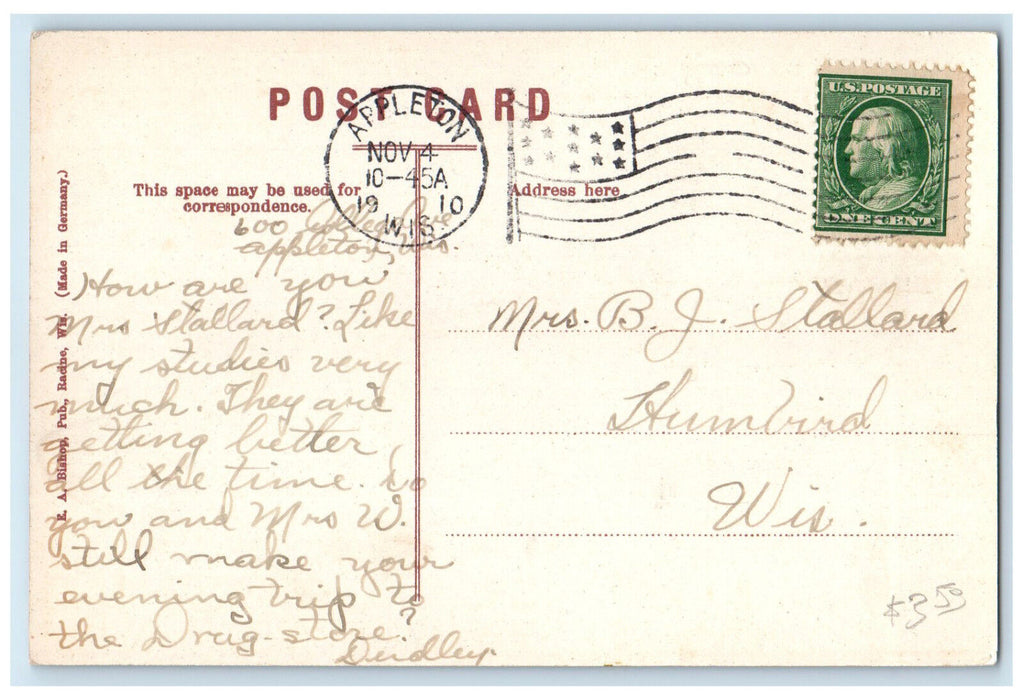 POST CARD
APPLETON
NOV 4
10-45A
19 10
WIS.
U.S. POSTAGE
ONE CENT
This space may be used for
correspondence.
Address here
E. A. Bishop, Pub., Racine, Wis. (Made in Germany.)
600 College Ave
Appleton, Wis.
How are you
Mrs Stallard? Like
my studies very
much. They are
getting better
all the time. Do
you and Mrs W.
still make your
evening trip to
the Drug-store?
Dudley.
Mrs. B. J. Stallard
Humbird
Wis.
$3.50